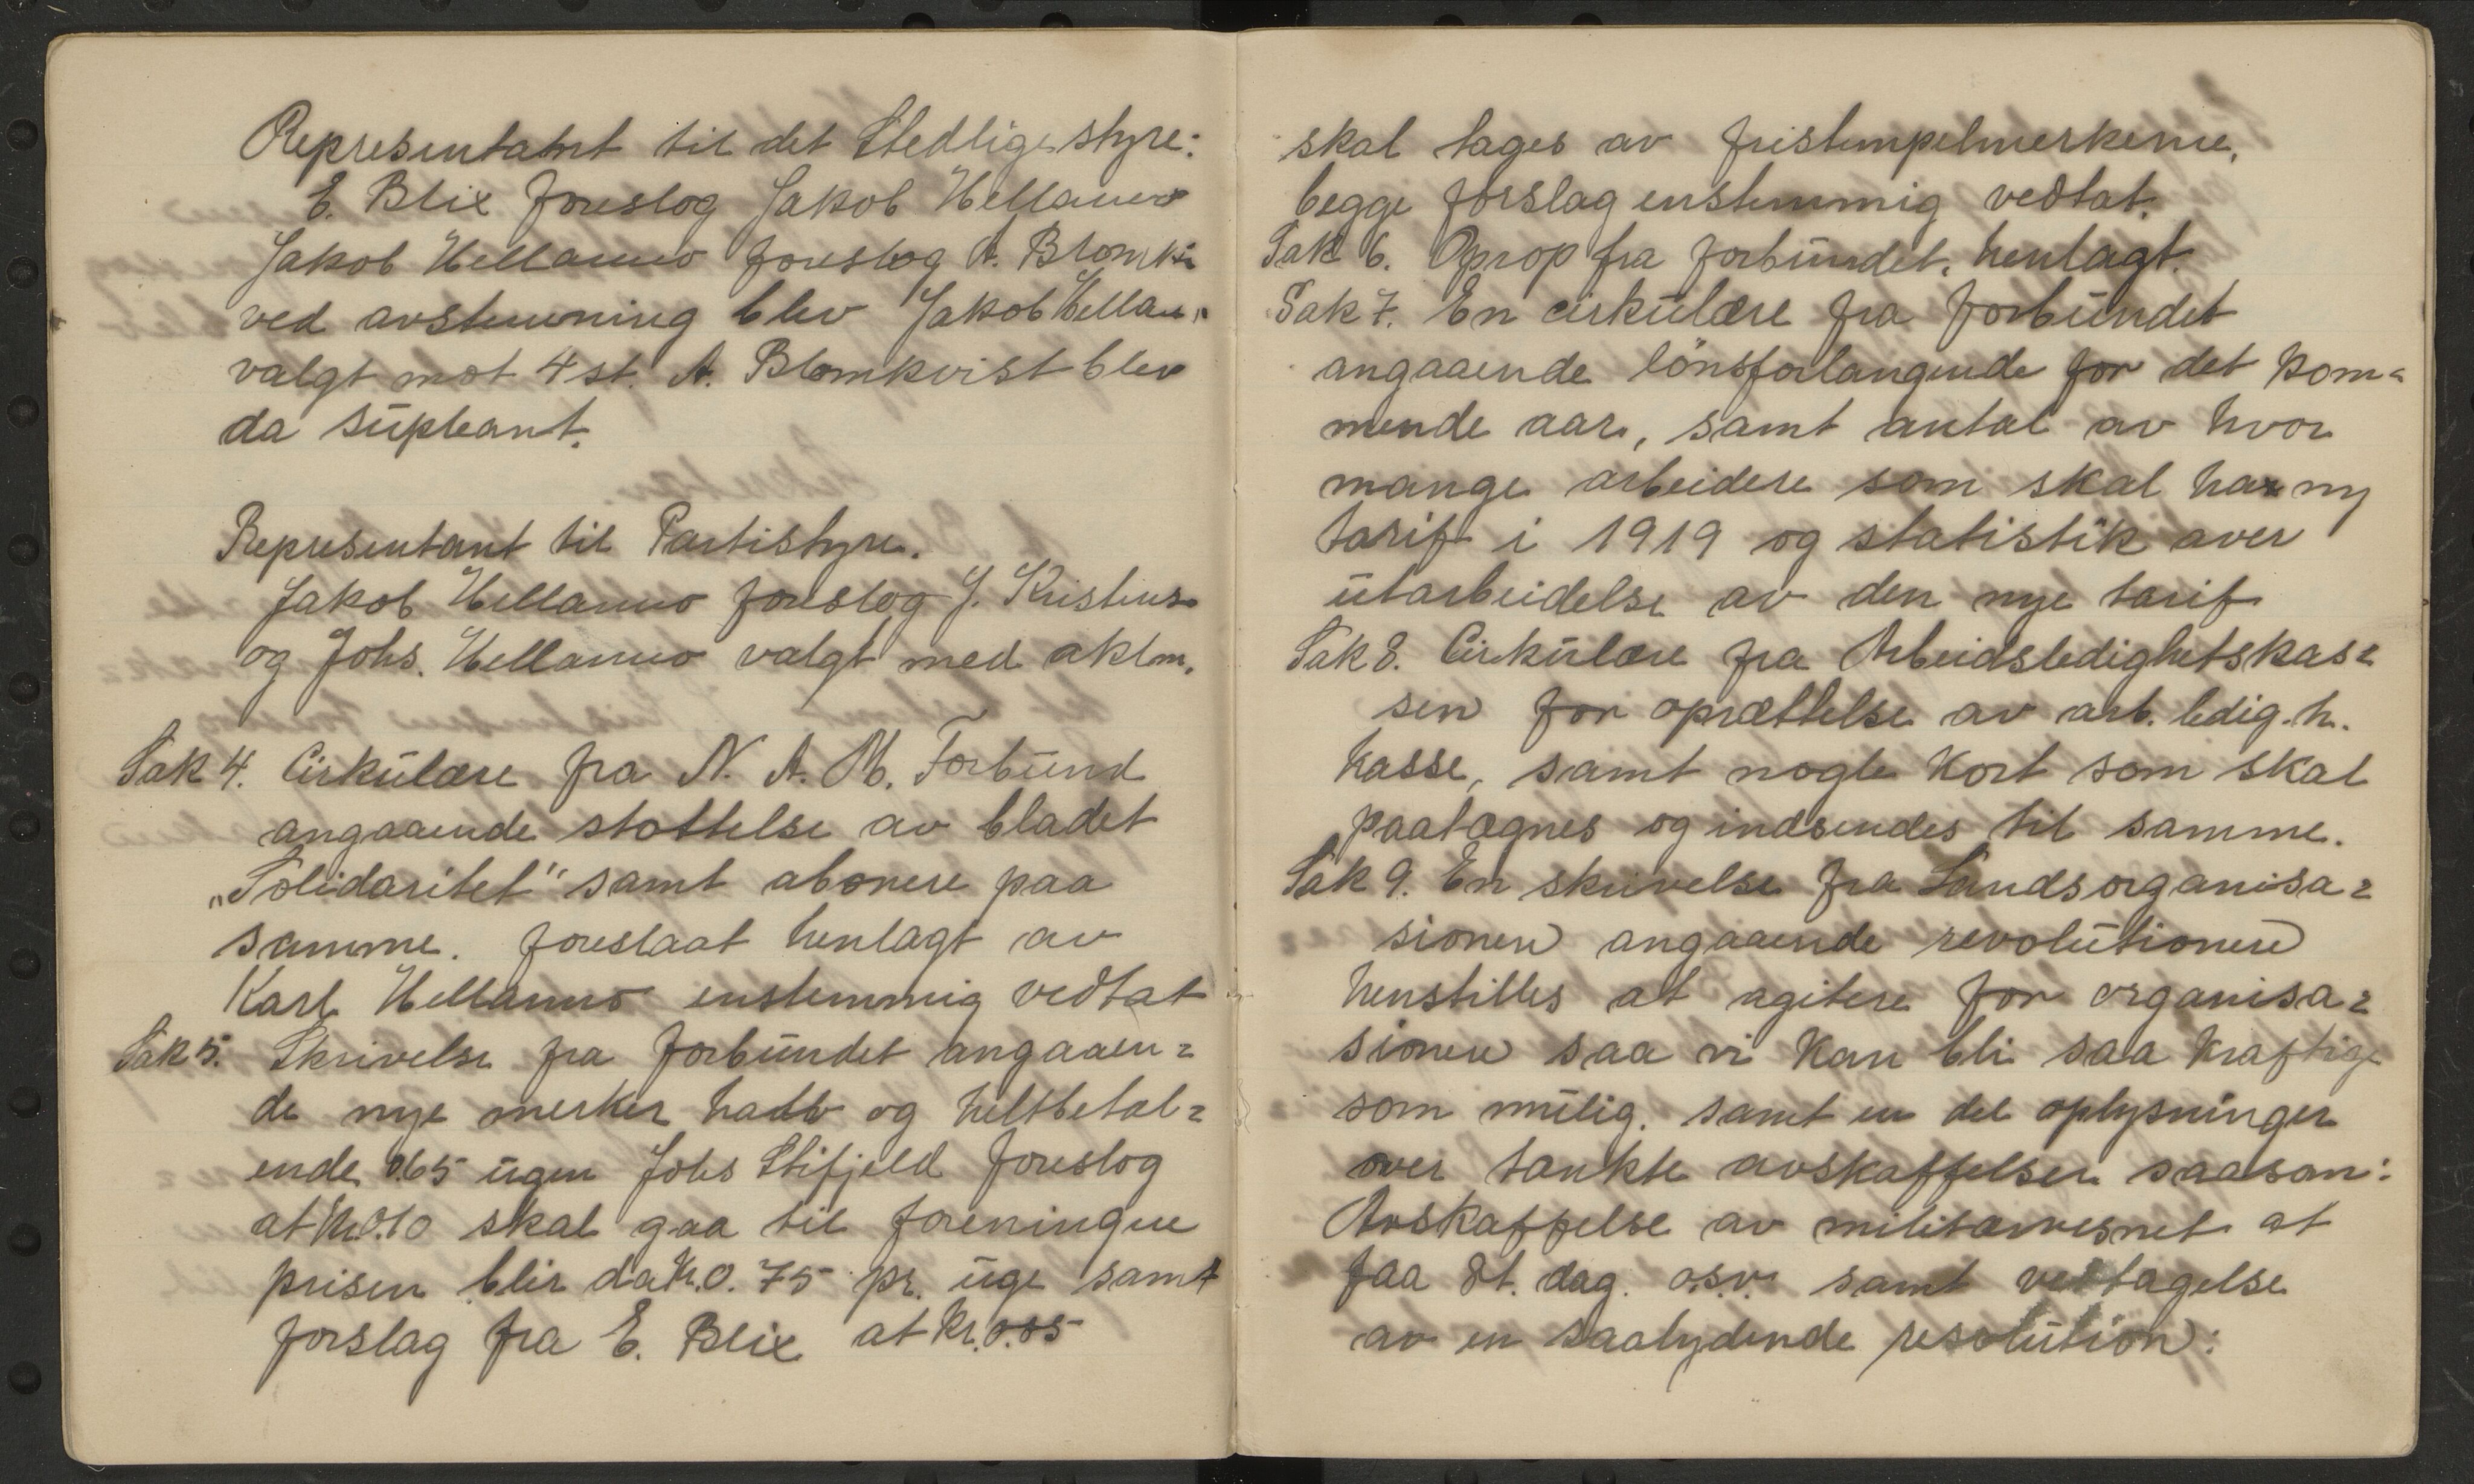 Representatnt til det Stedlige styre:
E. Blix foreslog Jakob Hellamo
Jakob Hellamo foreslog A. Blomkvi
ved avstemning blev Jakob Hellam.
valgt mot 4 st. A. Blomkvist blev
da supleant.
Representant til Partistyre.
Jakob Hellamo foreslog J. Kristens
og Johs. Hellamo valgt med aklm.
Sak 4. Cirkulære fra N. A. M. Forbund
angaaende støttelse av bladet
„Solidaritet" samt abonere paa
samme. foreslaat henlagt av
Karl Hellamo enstemmig vedtat
Sak 5. Skrivelse fra forbundet angaaen=
de nye merker halv og heltbetal=
ende 0.65 ugen Johs Stifjeld foreslog
at Kr. 0.10 skal gaa til foreningen
prisen blir da Kr. 0.75 pr. uge samt
forslag fra E. Blix at Kr. 0.05
skal tages av fristempelmerkerne,
begge forslag enstemmig vedtat.
Sak 6. Oprop fra forbundet, henlagt.
Sak 7. En cirkulære fra forbundet
angaaende lönsforlangende for det kom=
mende aar, samt antal av hvor
mange arbeidere som skal ha ny
tarif i 1919 og statistik over
utarbeidelse av den nye tarif
Sak 8. Cirkulære fra Arbeidsledighetskas=
sen for oprættelse av arb. ledig. h.
kasse, samt nogle kort som skal
paategnes og indsendes til samme.
Sak 9. En skrivelse fra Landsorganisa=
sionen angaaende revolutionere
henstilles at agitere for organisa=
sionen saa vi kan bli saa kraftige
som mulig. samt en del oplysninger
over tænkte avskaffelser saasom:
Avskaffelse av militærvesnet at
faa 8 t. dag. o.s.v. samt vedtagelse
av en saalydende resolution: